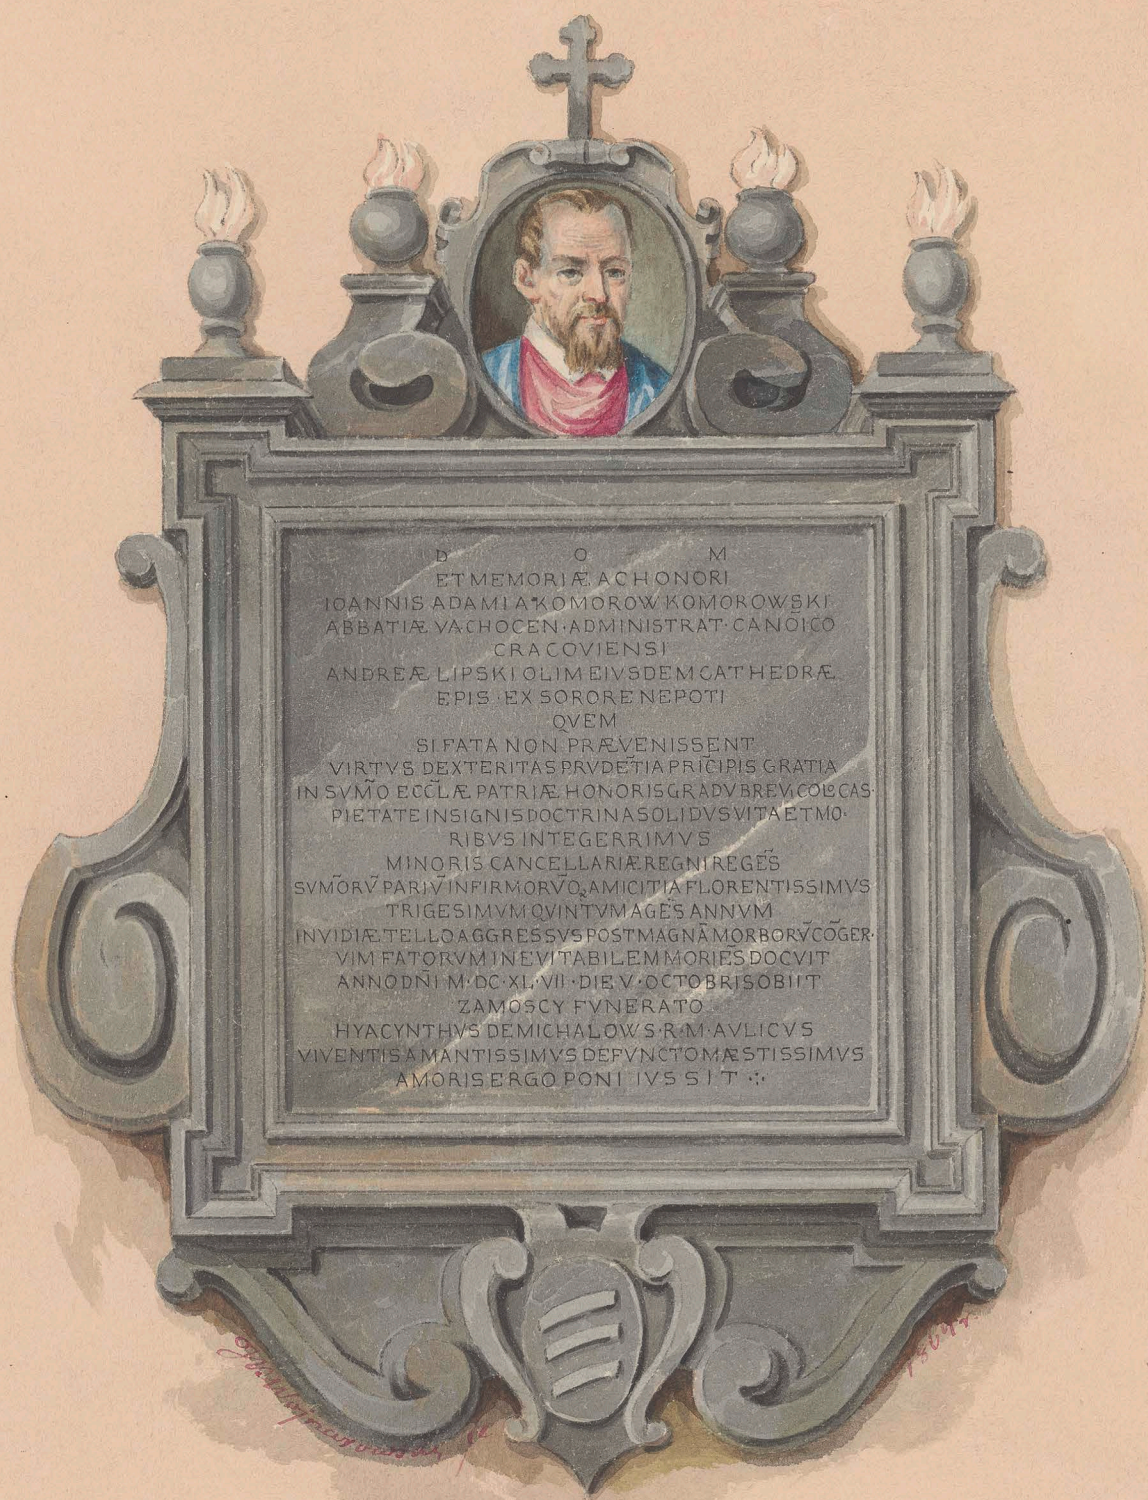 D O M
ET MEMORIÆ AC HONORI
IOANNIS ADAMI A KOMOROW KOMOROWSKI
ABBATIÆ VACHOCEN·ADMINISTRAT·CANOĪCO
CRACOVIENSI
ANDREÆ LIPSKI OLIM EIVSDEM CATHEDRÆ
EPIS·EX SORORE NEPOTI
QVEM
SI FATA NON PRÆVENISSENT
VIRTVS DEXTERITAS PRVDEТ̄IA PRIC̄IPIS GRATIA
IN SVM̄O ECC̄LÆ PATRIÆ HONORIS GRADV BREVI COL̄CAS·
PIETATE INSIGNIS DOCTRINA SOLIDVS VITA ET MO·
RIBVS INTEGERRIMVS
MINORIS CANCELLARIÆ REGNI REGĒS
SVM̄ORV̄ PARIV̄ INFIRMORV̄Q AMICITIA FLORENTISSIMVS
TRIGESIMVM QVINTVM AGĒS ANNVM
INVIDIÆ TELLO AGGRESSVS POST MAGNĀ MORBORV̄ CŌGER·
VIM FATORVM INEVITABILEM MORIĒS DOCVIT
ANNO DN̄I M·DC·XL·VII·DIE V·OCTOBRIS OBIIT
ZAMOSCY FVNERATO
HYACYNTHVS DE MICHALOWS·R·M·AVLICVS
VIVENTIS AMANTISSIMVS DEFVNCTO MÆSTISSIMVS
AMORIS ERGO PONI IVSSIT